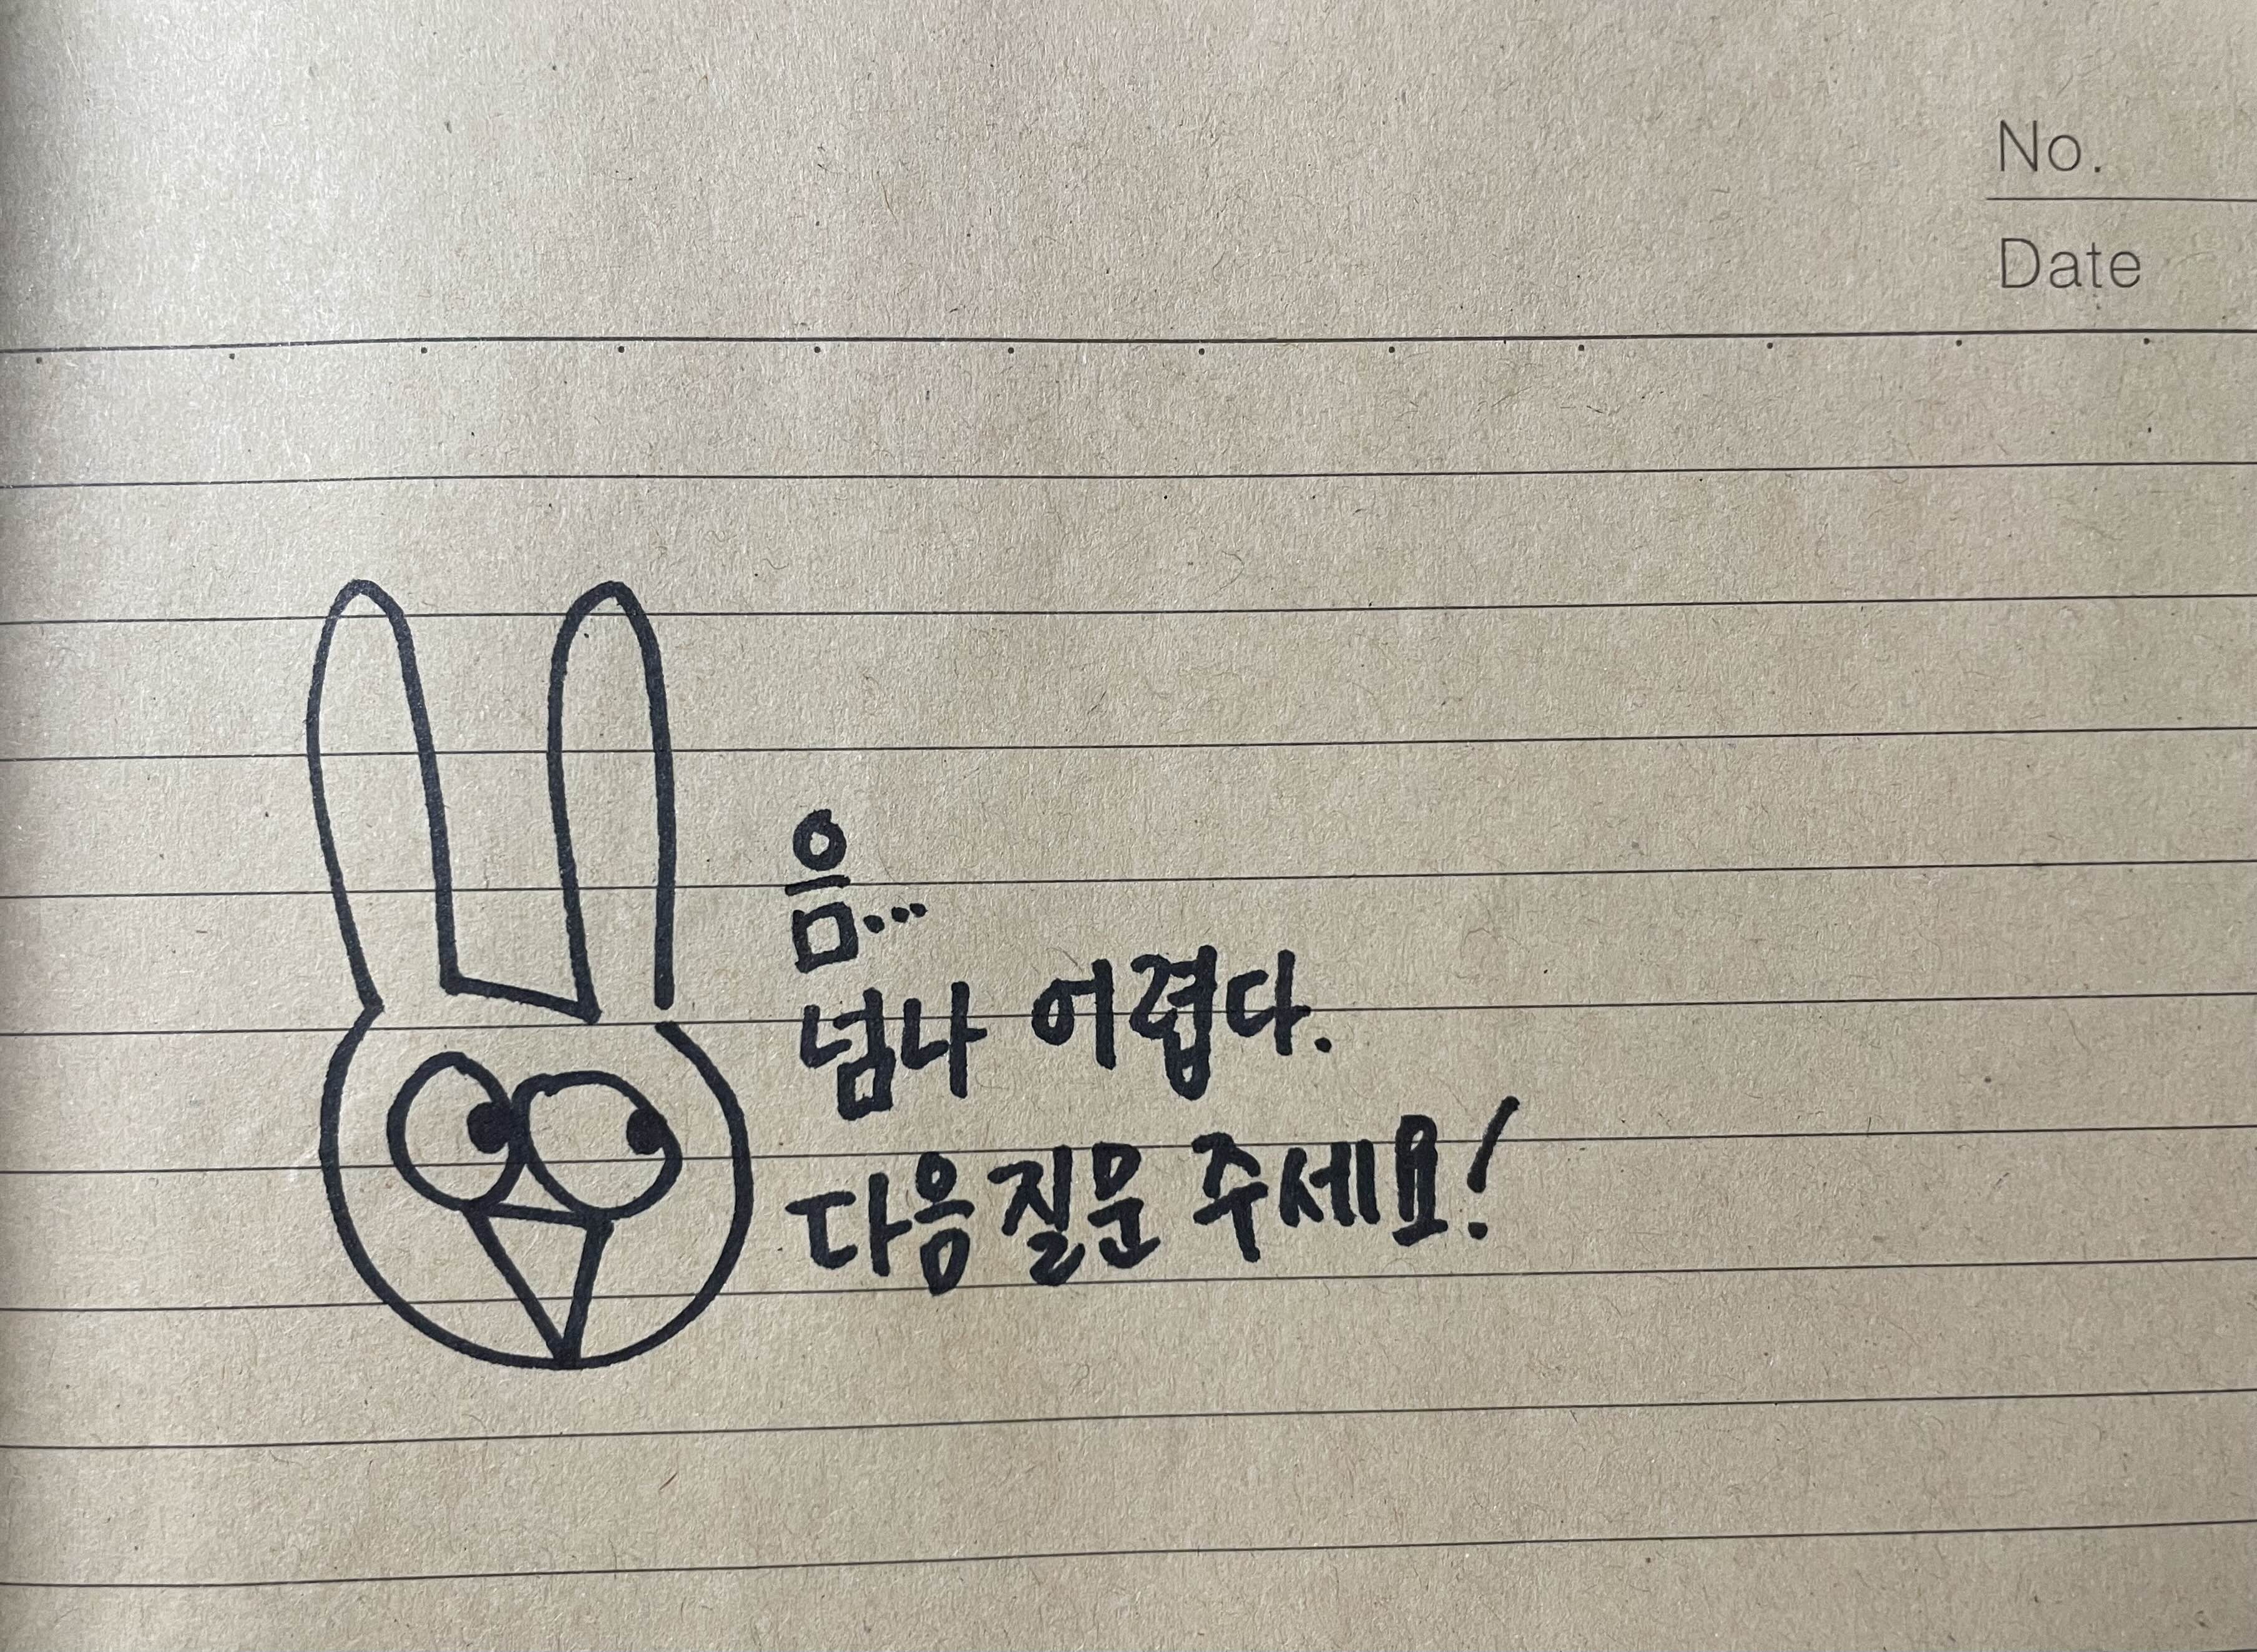 No.
Date
음...
넘나 어렵다.
다음 질문 주세요!